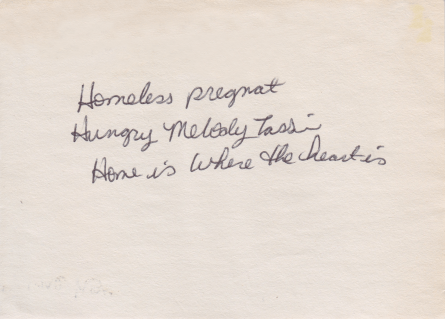 Homeless pregnat
Hungry Melody Tassi
Home is Where the heart is